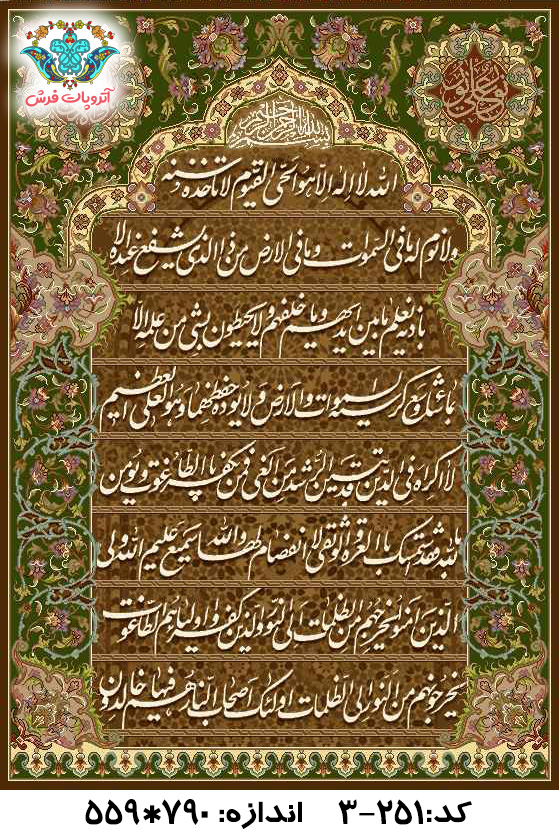 آتروپات فرش
نور علی نور
بسم الله الرحمن الرحیم
الله لا اله الا هو الحی القیوم لا تاخذه سنة
ولا نوم له ما فی السموات و ما فی الارض من ذا الذی یشفع عنده الا
باذنه یعلم ما بین ایدیهم و ما خلفهم ولا یحیطون بشی من علمه الا
بما شاء وسع کرسیه السموات والارض ولا یوده حفظهما وهو العلی العظیم
لا اکراه فی الدین قد تبین الرشد من الغی فمن یکفر بالطاغوت ویومن
بالله فقد استمسک بالعروة الوثقی لا انفصام لها والله سمیع علیم الله ولی
الذین امنوا یخرجهم من الظلمات الی النور والذین کفروا اولیاوهم الطاغوت
یخرجونهم من النور الی الظلمات اولئک اصحاب النار هم فیها خالدون
کد:۲۵۱-۳ اندازه: ۷۹۰*۵۵۹